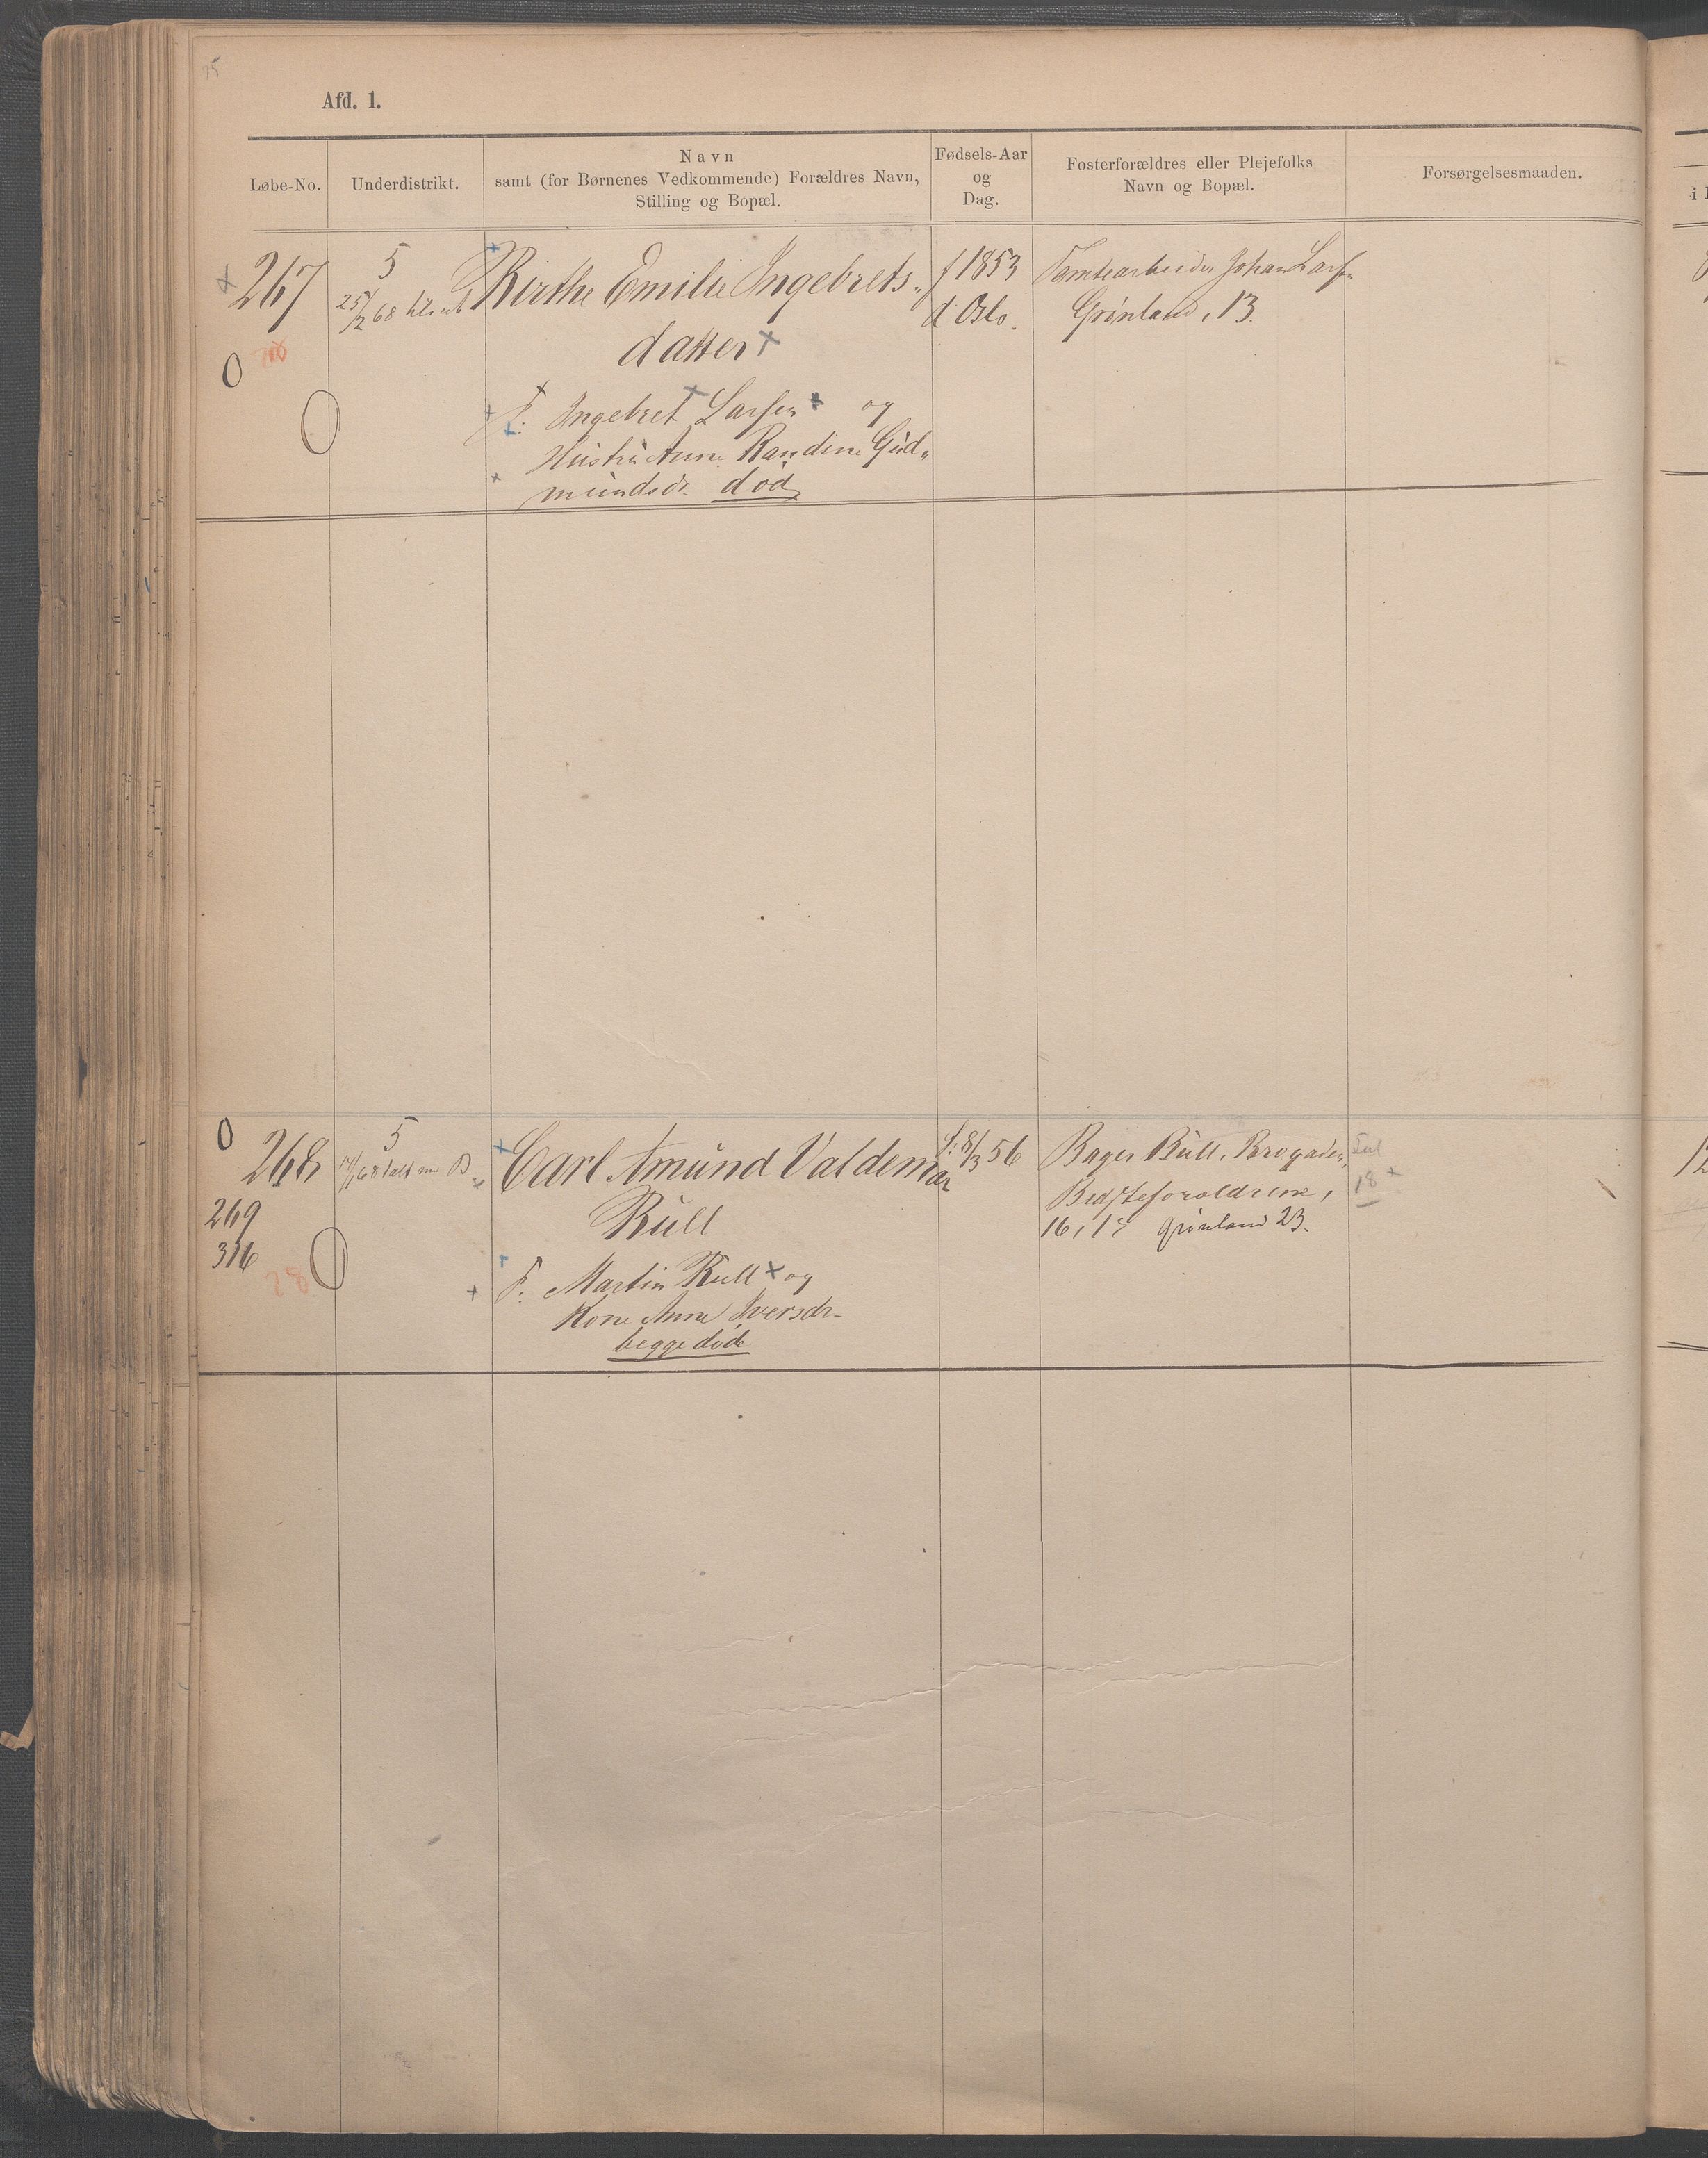 Afd. 1.
Løbe-No.
Underdistrikt.
Navn
samt (for Børnenes Vedkommende) Forældres Navn,
Stilling og Bopæl.
Fødsels-Aar
og
Dag.
Fosterforældres eller Plejefolks
Navn og Bopæl.
Forsørgelsesmaaden.
267
5
25/2 68
Birthe Emilie Ingebrets„
datter
F. Ingebret Larsen og
Hustru Anne Randine Gud„
mundsdr. død
f 1853
d Oslo.
Tomtearbeider Johan Larsen
Grønland, 13.
0
0
0
268
269
316
28
5
Carl Amund Valdemar
Bull
F. Martin Bull og
Kone Anne Iversdr.
begge døde
f. 8/3 56
Bager Bull, Brogaden,
Bedsteforældrene,
16, 17 Grønland 23.
18